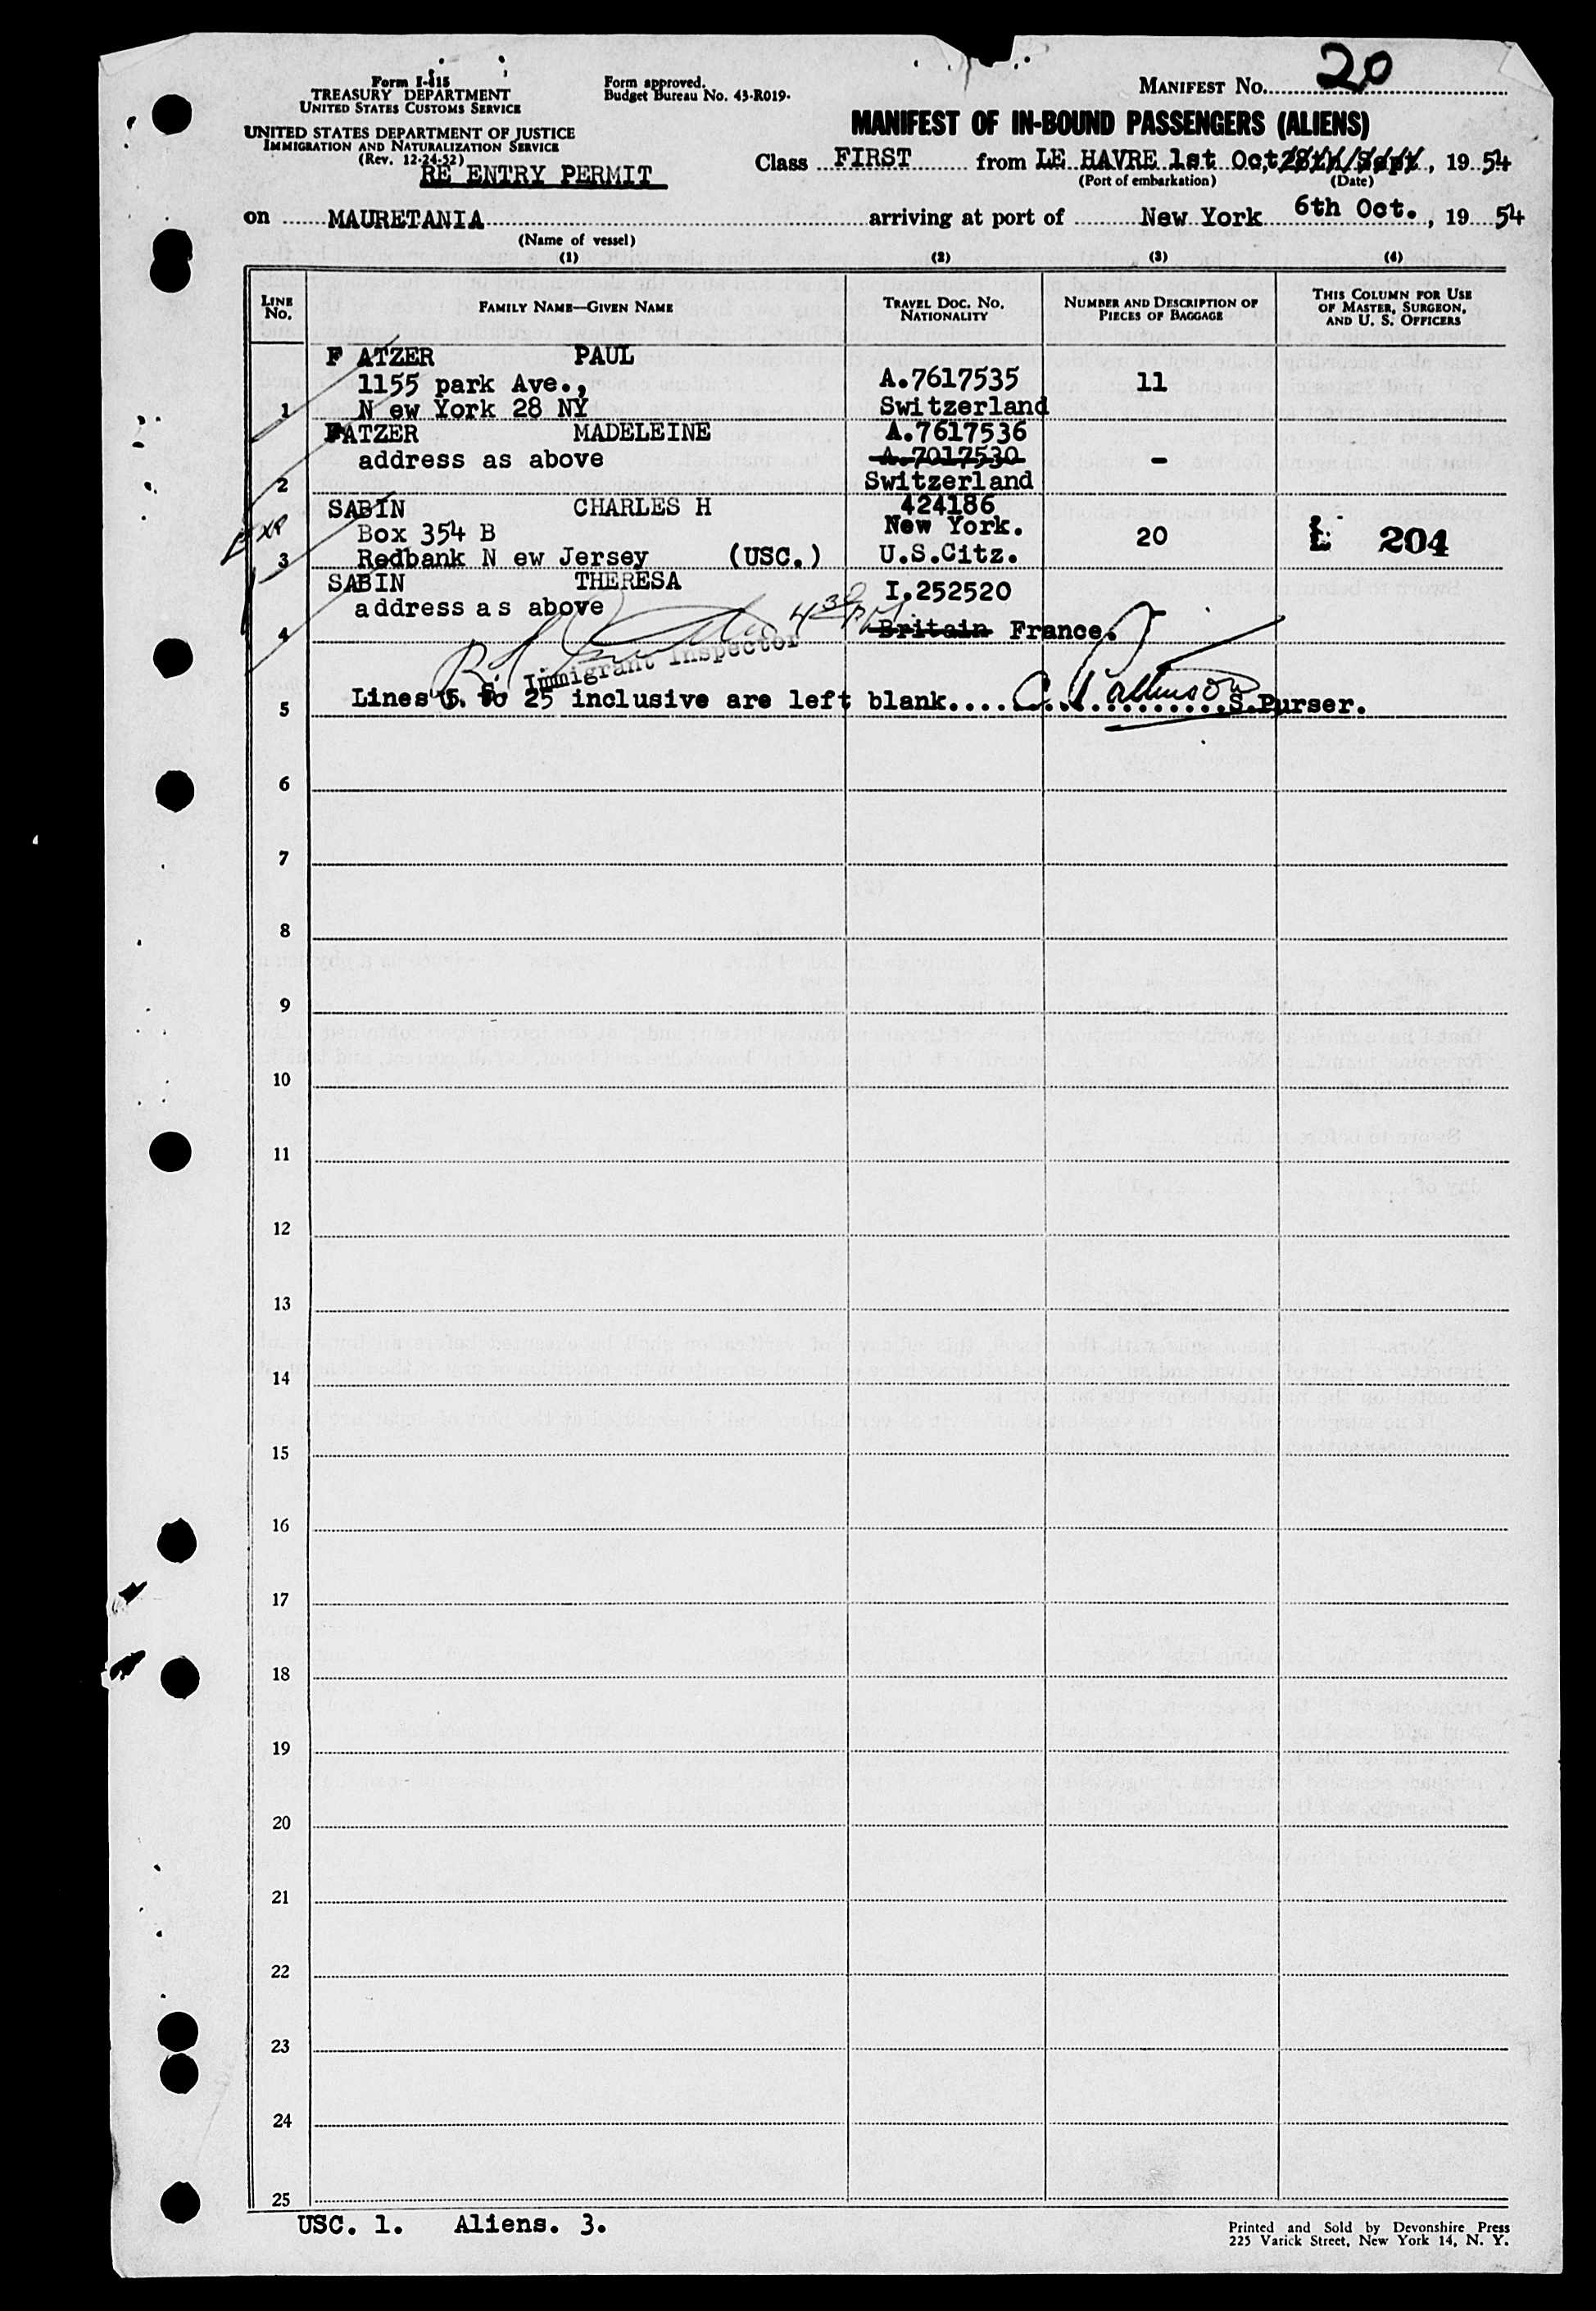 Form I-415
TREASURY DEPARTMENT
UNITED STATES CUSTOMS SERVICE
UNITED STATES DEPARTMENT OF JUSTICE
IMMIGRATION AND NATURALIZATION SERVICE
(Rev. 12-24-52)
RE ENTRY PERMIT
Form approved.
Budget Bureau No. 43-R019.
MANIFEST No. 20
MANIFEST OF IN-BOUND PASSENGERS (ALIENS)
Class FIRST from LE HAVRE 1st Oct, 28th Sept, 19 54
(Port of embarkation) (Date)
on MAURETANIA arriving at port of New York 6th Oct., 19 54
(Name of vessel)
(1) (2) (3) (4)
LINE No. FAMILY NAME—GIVEN NAME TRAVEL DOC. NO. NATIONALITY NUMBER AND DESCRIPTION OF PIECES OF BAGGAGE THIS COLUMN FOR USE OF MASTER, SURGEON, AND U. S. OFFICERS
F ATZER PAUL
1155 park Ave., A.7617535 11
1 N ew York 28 NY Switzerland
FATZER MADELEINE A.7617536
address as above A.7017530 -
2 Switzerland
SABIN CHARLES H 424186
Box 354 B New York. 20 E 204
3 Redbank N ew Jersey (USC.) U.S.Citz.
SABIN THERESA I.252520
address as above
4 Britain France.
Immigrant Inspector
5 Lines 5. to 25 inclusive are left blank.... S.Purser.
6
7
8
9
10
11
12
13
14
15
16
17
18
19
20
21
22
23
24
25
USC. 1. Aliens. 3.
Printed and Sold by Devonshire Press
225 Varick Street, New York 14, N. Y.